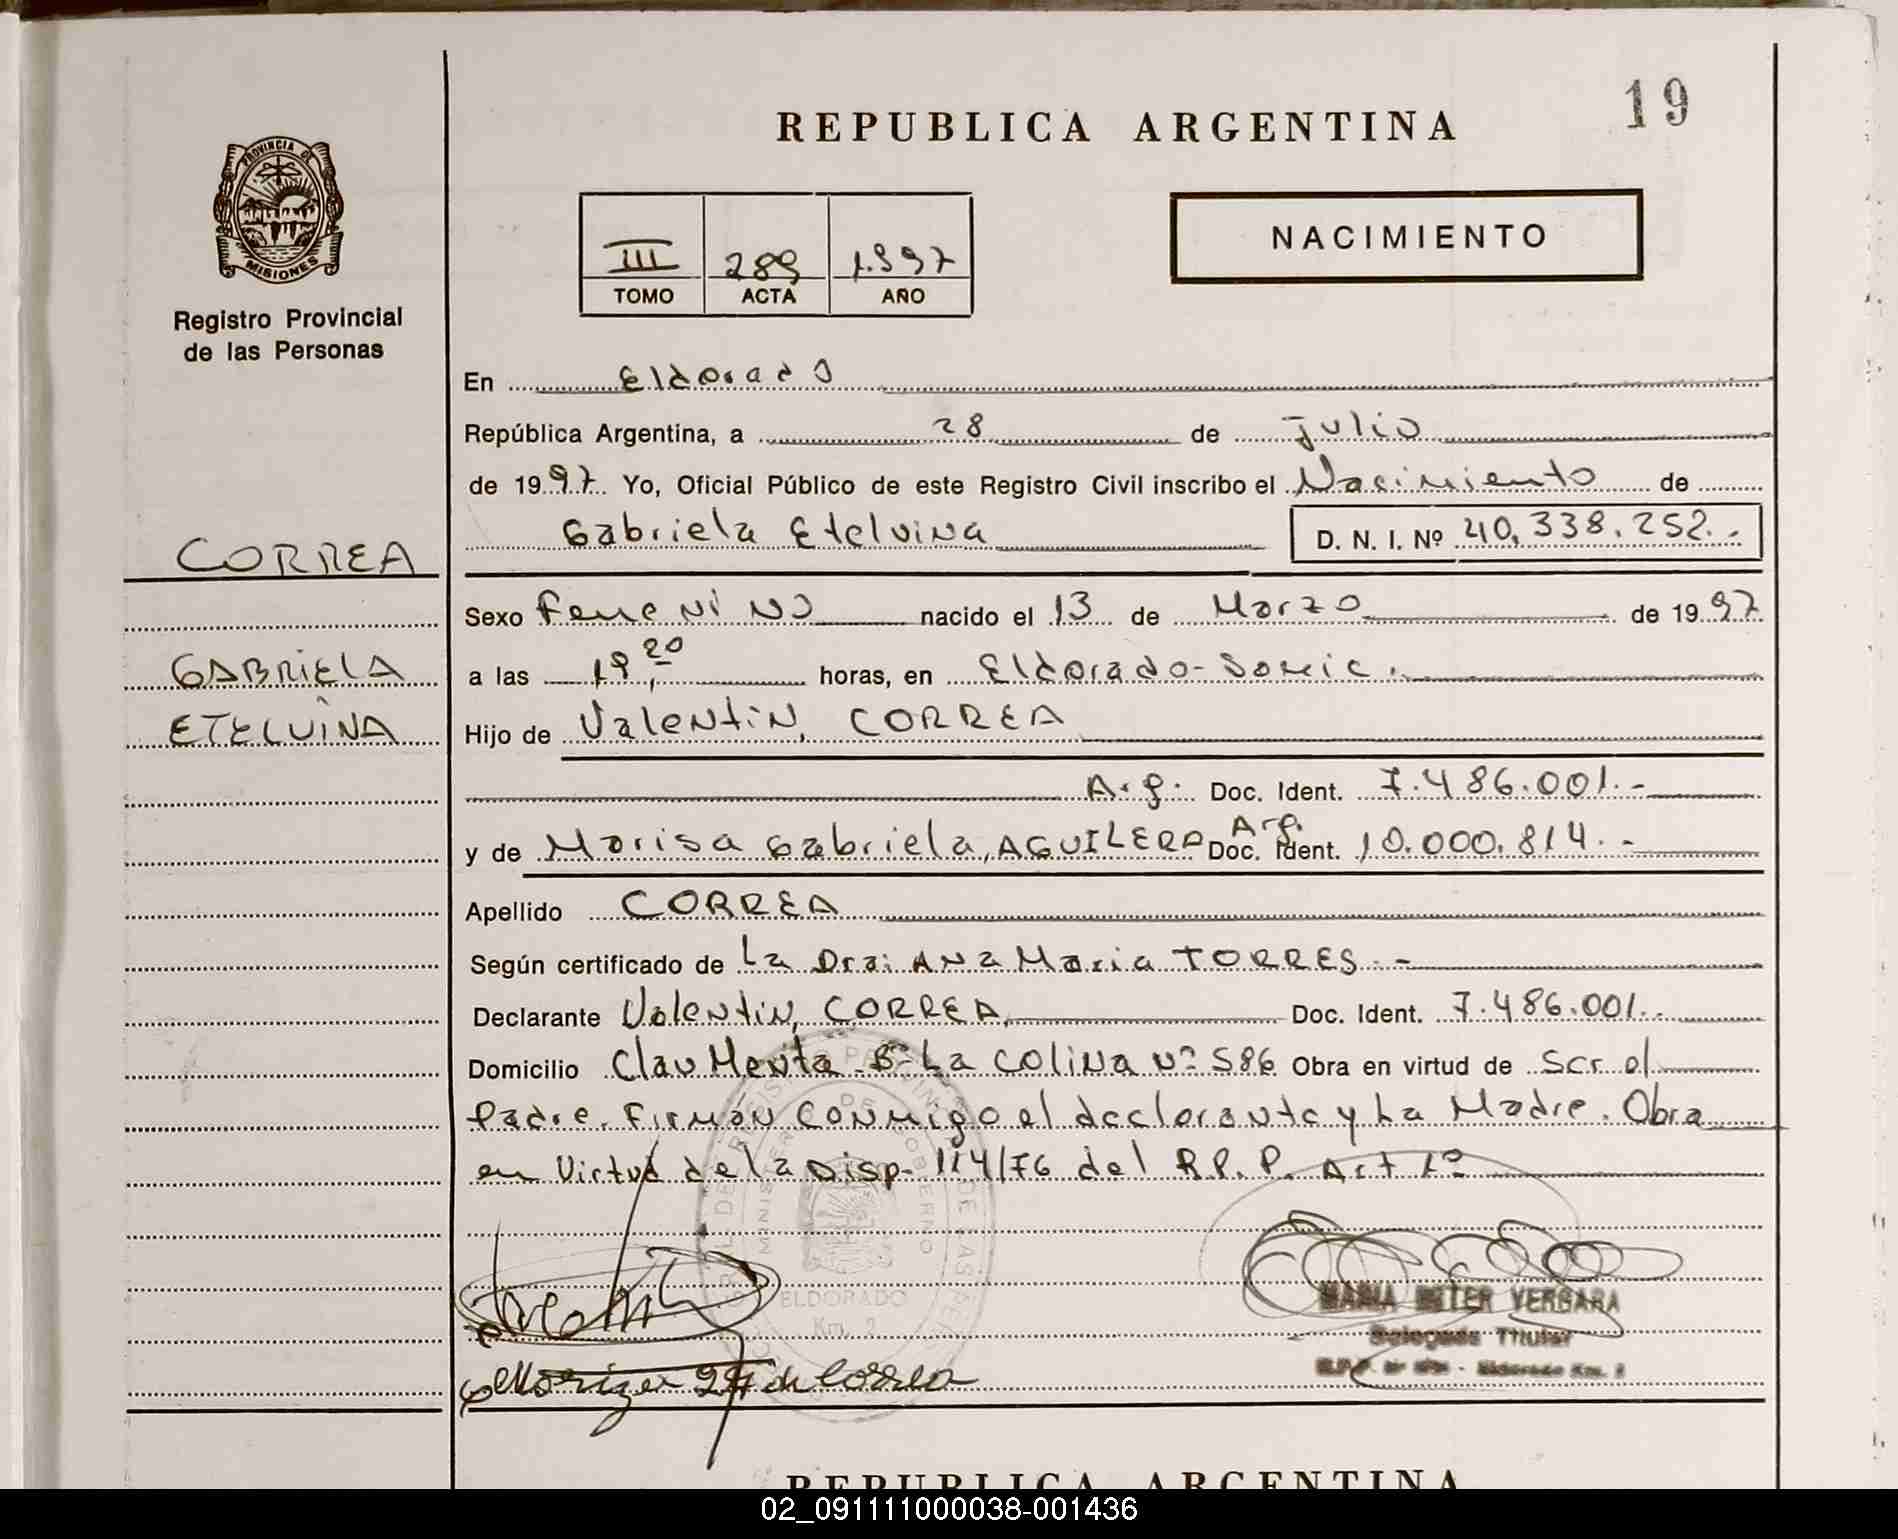 19
REPUBLICA ARGENTINA
PROVINCIA DE
MISIONES
Registro Provincial
de las Personas
III 289 1.997
TOMO ACTA AÑO
NACIMIENTO
En Eldorado
República Argentina, a 28 de julio
de 1997. Yo, Oficial Público de este Registro Civil inscribo el Nacimiento de
Gabriela Etelvina D. N. I. Nº 40.338.252.-
CORREA
GABRIELA
ETELVINA
Sexo Femenino nacido el 13 de Marzo de 1997
a las 19,20 horas, en Eldorado-Somic.
Hijo de Valentin, CORREA
Arg. Doc. Ident. 7.486.001.-
y de Marisa Gabriela, AGUILERA Arg. Doc. Ident. 10.000.814.-
Apellido CORREA
Según certificado de La Dra: Ana Maria TORRES.-
Declarante Valentin, CORREA, Doc. Ident. 7.486.001.-
Domicilio Clau Menta Bº La Colina Nº 586 Obra en virtud de Ser el
Padre. Firman Conmigo el declarante y La Madre. Obra
en Virtud de la Disp. 114/76 del R.P.P. Art 1º
MINISTERIO DE GOBIERNO
ELDORADO
Km. 2
MARIA ESTER VERGARA
Delegada Titular
Eldorado Km. 2
de Correa
REPUBLICA ARGENTINA
02_091111000038-001436